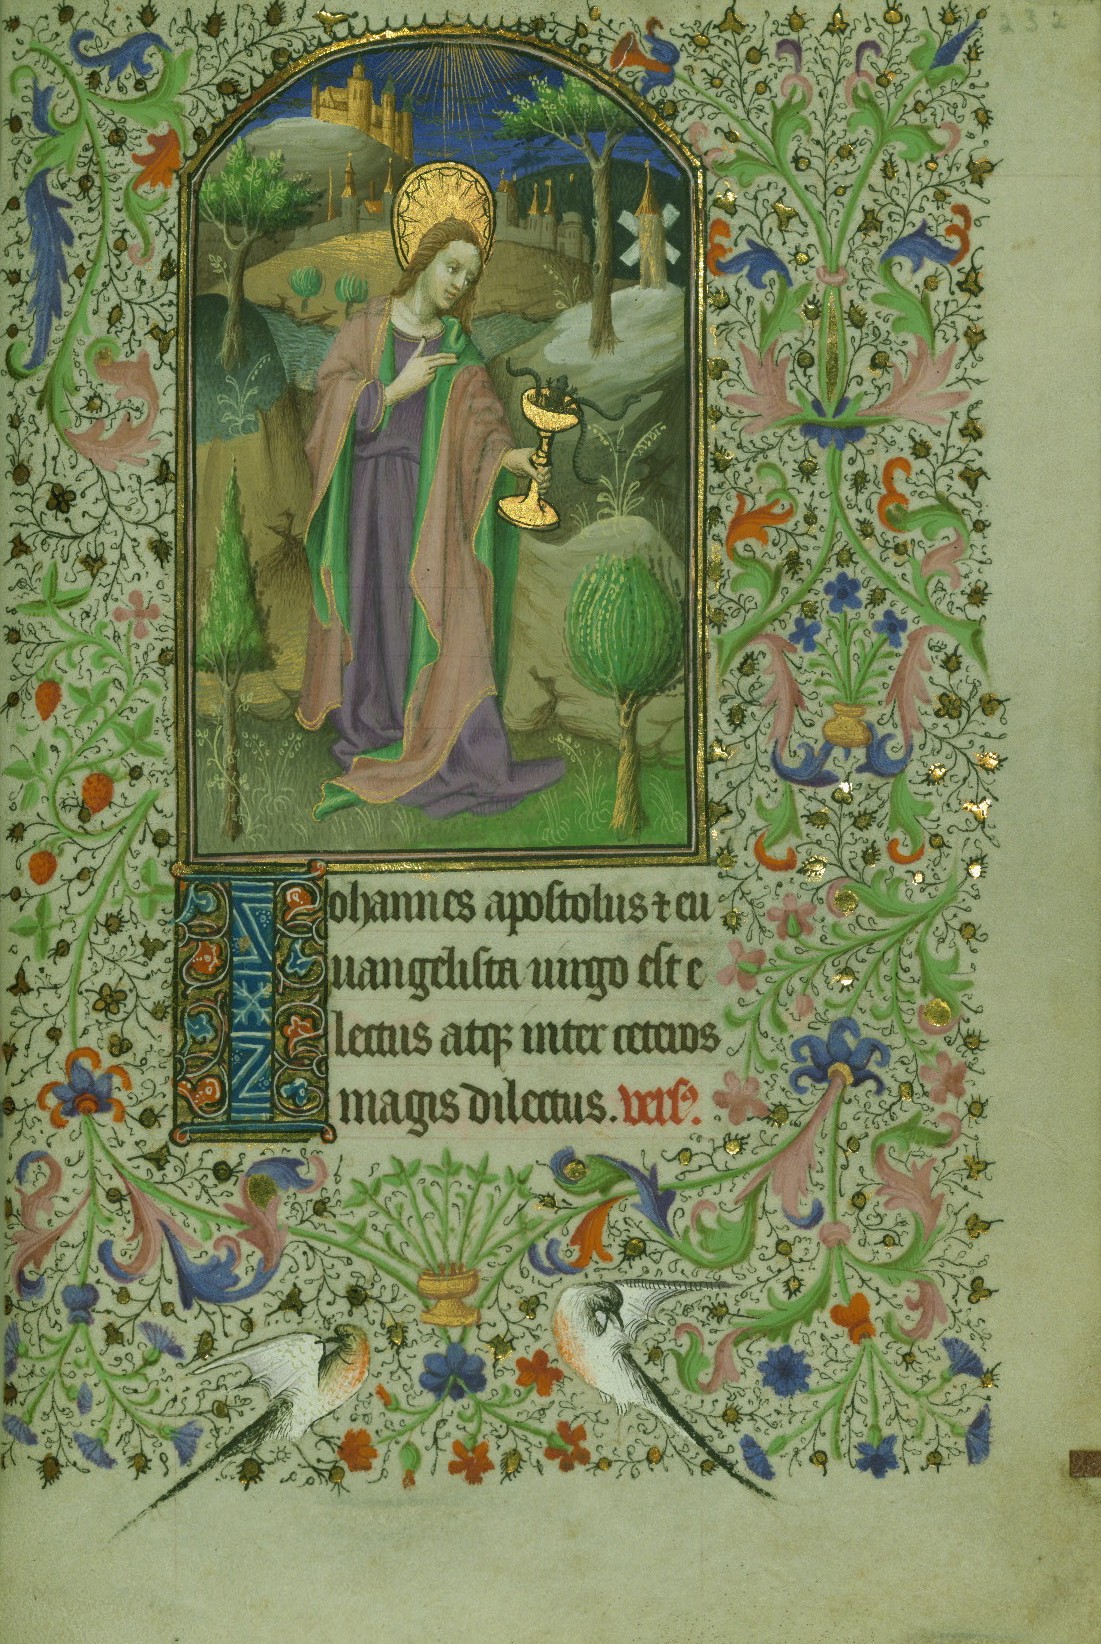 232
Iohannes apostolus ⁊ eu
uangelista uirgo est e
lectus atqꝫ inter ceteros
magis dilectus. vers.